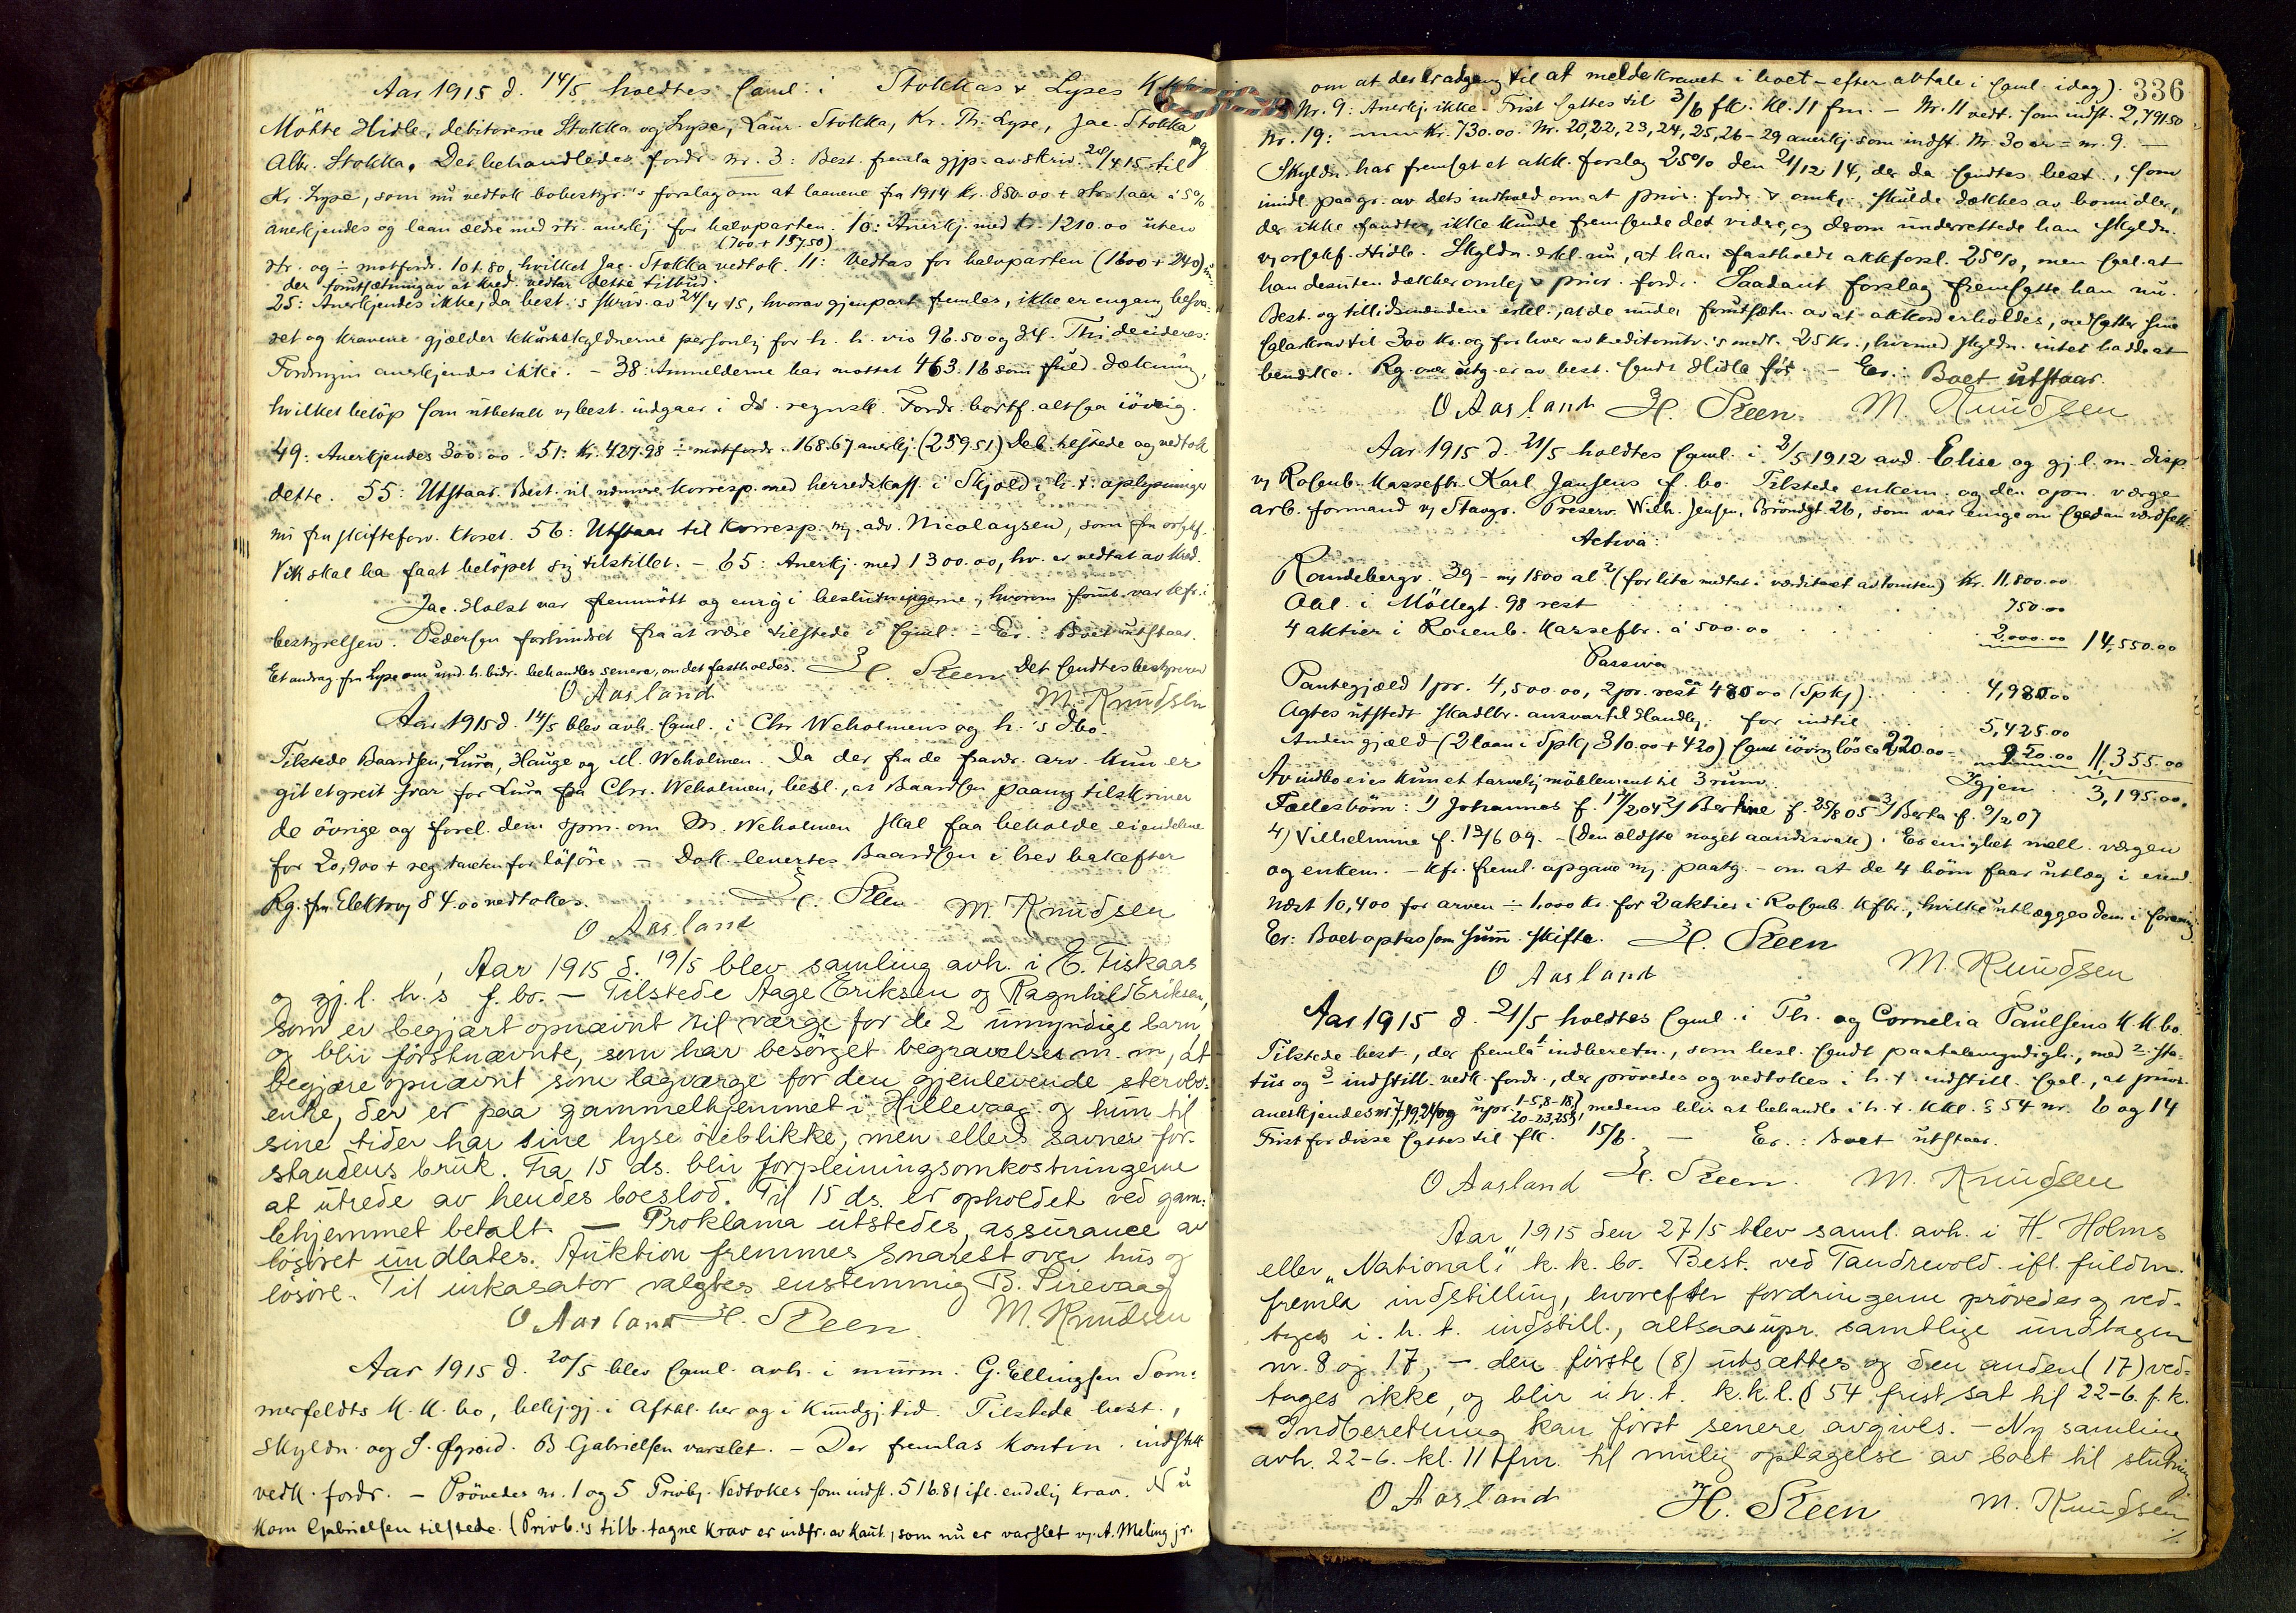 Aar 1915 d. 14/5 holdtes saml. i Stokkas & Lyses K.k.bo
Möthte Hidle, debitorerne Stokka og Lyse, Laur. Stokka, Kr. Th. Lyse, Jac. Stokka og
Alb. Stokka. Der behandledes fordr. nr. 3: Best. fremla gjp. av skriv. 20/4 15 til
Kr. Lyse, som nu vedtok bobestyr.'s forslag om at laanene fra 1914 kr. 850.00 + rtr. 1 aar à 5%
anerkjendes og laan ældre med rtr. anerkj. for halvparten. 10: Anerkj. med kr. 1210.00 uten
(700 + 157.50)
rtr. og ÷ motfordr. 101.80, hvilket Jac. Stokka vedtok. 11: Vedtas for halvparten (1600 + 240)
der forutsætning av at kred. vedtar dette tilbud.
25: Anerkjendes ikke, da best.'s skriv. av 24/4 15, hvorav gjenpart fremles, ikke er engang besva-
ret og kravene gjælder kkursskyldnerne personlig for h. h. vis 96.50 og 34. Thi decideres:
Fordringen anerkjendes ikke. – 38: Anmelderne har mottat 463.16 som fuld dækning,
hvilket belöp som utbetalt v/ best. indgaar i ds. regnsk. Fordr. bortf. altsaa iövrig.
49: Anerkjendes 300.00. 51: Kr. 427.98 ÷ motfordr. 168.67 anerkj. (259.51) Deb. tilstede og vedtok
dette. 55: Utstaar. Best. vil nærmere korresp. med herredskass. i Skjold i h. t. oplysninger
nu fra skifteforv. ktoret. 56: Utstaar til korresp. m/ adv. Nicolaysen, som fra orsakf.
Vik skal ha faat belöpet sig tilstillet. – 65: Anerkj. med 1300.00, hv. er vedtat av kred.
Jac. Holst var fremmött og enig i beslutningerne, hvorom forut. var kfr. i
bestyrelsen. Pedersen forhindret fra at være tilstede i saml. – Er.: Boet utstaar.
Et andrag. fra Lyse om und. h. bidr. behandles senere, om det fastholdes. H. Steen Det sendtes bestyreren
O Aasland M. Knudsen
Aar 1915 d. 14/5 blev avh. saml. i Chr Weholmens og h.'s dbo.
Tilstede Baardsen, Lura, Hauge og M. Weholmen. Da der fra de fravær. arv. kun er
git et greit svar for Lura fra Chr. Weholmen, besl., at Baardsen paany tilskriver
de övrige og forel. dem spm. om M. Weholmen skal faa beholde eiendelene
for 20,900 + reg. taksten for lösöre. – Dok. levertes Baardsen i brev bakefter
Rg. fra Elektrv. 84.00 vedtokes. H. Steen M. Knudsen
O Aasland
Aar 1915 d. 19/5 blev samling avh. i E. Fiskaas
og gj. l. h.s f. bo. – Tilstede Aage Eriksen og Ragnhild Eriksen,
som er begjært opnævnt til værge for de 2 umyndige barn,
og blir förstnævnte, som har besörget begravelsen m. m, at
begjære opnævnt som lagværge for den gjenlevende stervbo-
enke, der er paa gammelhjemmet i Hillevaag og hun til
sine tider har sine lyse öieblikke, men ellers savner for-
standens bruk. Fra 15 ds. blir forpleiningsomkostningerne
at utrede av hendes boeslod. Til 15 ds. er opholdet ved gam-
lehjemmet betalt. – Proklama utstedes, assurance av
lösöret undlates. Auktion fremmes snarest over hus og
lösöre. Til inkasator valgtes enstemmig B. Sirevaag
O Aasland H. Steen. M. Knudsen
Aar 1915 d. 20/5 blev saml. avh. i murm. G. Ellingsen Som-
merfeldts K. K. bo, bekj.gj. i Aftbl. her og i Kundgj. tid. Tilstede best.,
Skyldn. og S. Øgreid. B Gabrielsen varslet. – Der fremlas kontin. indstill
vedk. fordr. – Prövedes nr. 1 og 5 Privbj. Vedtokes som indst. 516.81 ifl. endelig krav. Nu
kom Gabrielsen tilstede. (Privb.'s tilb. tagne krav er indfr. av kaut., som nu er varslet v/ A. Meling jr.
336
om at des er adgang til at melde kravet i boet – efter avtale i saml. idag).
Nr. 9: Anerkj. ikke. Frist sattes til 3/6 fk. kl. 11 fm. – Nr. 11 vedt. som indst. 2,791.50
Nr. 19: –– kr. 730.00. Nr. 20, 22, 23, 24, 25, 26 – 29 anerkj. som indst. Nr. 30 er = nr. 9. –
Skyldn. har fremsat et akk. forslag 25% den 21/12 14, der da sendtes best., som
imidl. paagr. av dets indhold om at prior. fordr. & omk. skulde dækkes av bomidler,
der ikke fandtes, ikke kunde fremsende det videre, og dsom underrettede han skyldn.
v/ orsakf. Hidle. Skyldn. erkl. nu, at han fastholdt akkforsl. 25%, men saal. at
han desuten dækker omk. & prior. fordr. Saadant forslag fremsatte han nu.
Best. og tillidsmændene erkl., at de under forutsætn. av at akkord erholdes, nedsætter sine
salærkrav til 300 kr. og for hver av kreditorutv.'s medl. 25 kr., hvormed skyldn. intet hadde at
bemerke. Rg. over utg. er av best. sendt Hidle før. – Er.: Boet utstaar.
O Aasland H. Steen. M. Knudsen
Aar 1915 d. 21/5 holdtes saml. i 2/5 1912 avd. Elise og gj. l. m. disp
v/ Rosenb. Kassefbr. Karl Jansens f. bo. Tilstede enkem. og den opn. værge
arb. formand v/ Stavgr. Preserv. Wilh. Jensen, Bröndgt. 26, som var enige om saadan værdsett.
Activa:
Roundebergv. 39 – m/ 1800 al² (for lite medtat i værditaxt av tomten) Kr. 11,800.00
Obl. i Möllegt. 98 rest 750.00
4 aktier i Rosenb. Kassefbr. à 500.00 2,000.00 14,550.00
Passiva
Pantegjæld 1 pr. 4,500.00, 2 pr. rest ca 480.00 (Spkj.) 4,980.00
Agtes utstedt skadlbr. ansvar til Handlbj. for indtil 5,425.00
Anden gjæld (2 laan i Spkj. 310.00 + 420) samt iövrig lös ca 220.00 950.00 11,355.00
Av indbo eies kun et tarvelig möblement til 3 rum. Igjen 3,195.00.
Fællesbörn: 1) Johannes f. 17/2 04 2) Berthine f. 25/8 05 3) Berta f. 9/2 07
4) Vilhelmine f. 13/6 09. – (Den ældste noget aandssvak). Er enighet mell. værgen
og enkem. – kfr. freml. opgave m/. paategn. – om at de 4 börn faar utlæg i eiend.
næst 10,400 for arven ÷ 1,000 kr. for 2 aktier i Rosenb. Kfbr., hvilke utlægges dem i forening.
Er.: Boet optas som sum. skifte. H. Steen
O Aasland M. Knudsen
Aar 1915 d. 21/5 holdtes saml. i Th. og Cornelia Paulsens K K bo.
Tilstede best., der fremla 1 indberetn., som besl. sendt paatalemyndigh., med 2 sta-
tus og 3 indstill. vedk. fordr., der prövedes og vedtokes i h. t. indstill. saal., at prior.
anerkjendes nr. 7, 19, 24 og upr. 1-5, 8-18, 20-23, 25, medens blir at behandle i h. t. kkl. § 54 nr. 6 og 14
Frist for disse sattes til fk. 15/6. – Er.: Boet utstaar.
O Aasland H. Steen. M. Knudsen
Aar 1915 den 27/5 blev saml. avh. i H. Holms
eller „National"s k. k. bo. Best. ved Tandrevold ifl. fuldm.
fremla indstilling, hvorefter fordringerne prövedes og ved-
toges i. h. t. indstill., altsaa upr. samtlige undtagen
nr. 8 og 17, – den förste (8) utsættes og den anden (17) ved-
tages ikke, og blir i h. t. k.k.l. § 54 frist sat til 22-6. f. k.
– Indberetning kan först senere avgives. – Ny samling
avh. 22-6. kl. 11 fm. til mulig optagelse av boet til slutning
O Aasland H. Steen M. Knudsen